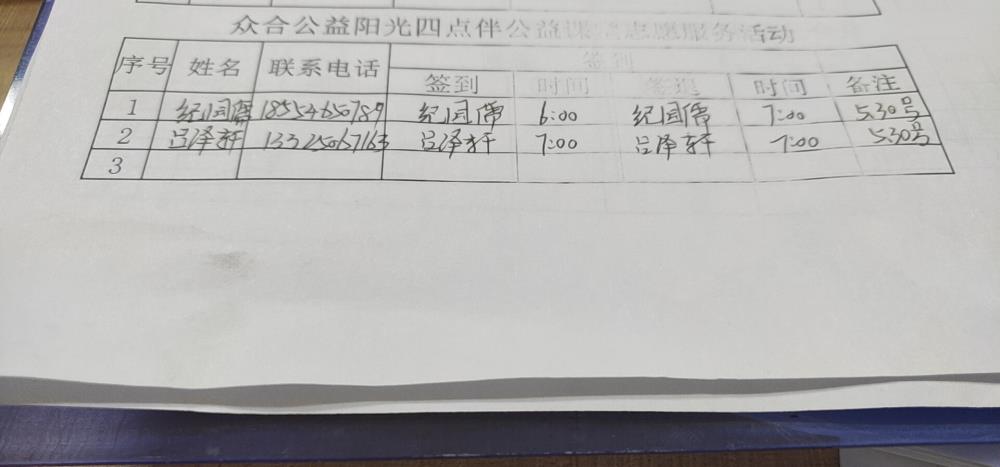 众合公益阳光四点伴公益课堂志愿服务活动
序号 姓名 联系电话 签到
签到 时间 签退 时间 备注
1 纪闰儒 18554650789 纪闰儒 6:00 纪闰儒 7:00 5.30号
2 吕泽轩 13325067163 吕泽轩 7:00 吕泽轩 7:00 5.30号
3